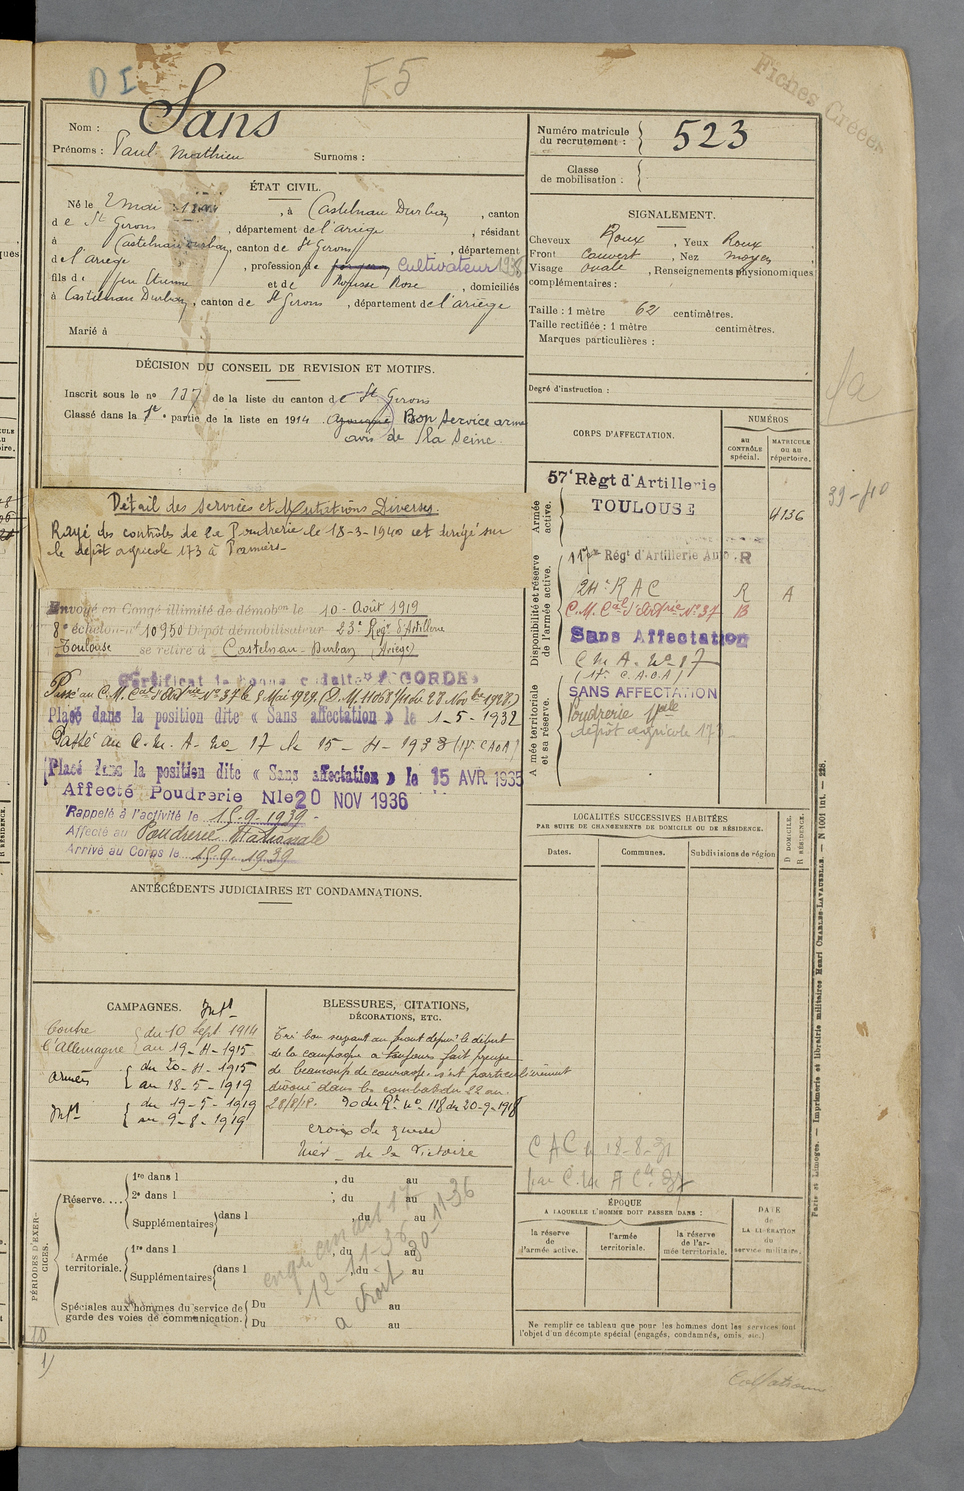 D I
F5
Fiches Créées
Nom : Sans
Prénoms : Paul Mathieu Surnoms :
Numéro matricule
du recrutement : 523
Classe
de mobilisation :
ÉTAT CIVIL.
Né le 2 mai , à Castelnau Durban , canton
de St Girons , département de l'ariège , résidant
à Castelnau Durban, canton de St Girons , département
de l'ariège , profession de Cultivateur
fils de feu Etienne et de Rose , domiciliés
à Castelnau Durban , canton de St Girons , département de l'ariège
Marié à
SIGNALEMENT.
Cheveux Roux , Yeux Roux
Front couvert , Nez moyen
Visage ovale , Renseignements physionomiques
complémentaires :
Taille : 1 mètre 62 centimètres.
Taille rectifiée : 1 mètre centimètres.
Marques particulières :
Degré d'instruction :
DÉCISION DU CONSEIL DE REVISION ET MOTIFS.
Inscrit sous le no 137 de la liste du canton de St Girons
Classé dans la 1e partie de la liste en 1914 Bon service armé
avis de la Seine
CORPS D'AFFECTATION.
NUMÉROS
AU CONTRÔLE spécial.
MATRICULE ou au répertoire.
Armée active.
57e Règt d'Artillerie
TOULOUSE
4136
39-40
Détail des services et Mutations Diverses.
Rayé des contrôles de la Poudrerie le 18-3-1940 et dirigé sur
le dépôt agricole 173 à Pamiers
Envoyé en Congé illimité de démobon le 10 - Août 1919
8e échelon no 10950 Dépôt démobilisateur 23e Régt d'Artillerie
Toulouse se retire à Castelnau-Durban (Ariège)
Certificat de bonne conduite "ACCORDÉ"
Passé au C.M. Cal d'Artrie No 37 le 8 Mai 1929 (D.M. 11068 4/1 du 28 Novbre 1928)
Placé dans la position dite « Sans affectation » le 1-5-1932
Passé au C. M. A. no 17 le 15-4-1933 (17e CAOA)
Placé dans la position dite « Sans affectation » le 15 AVR. 1935
Affecté Poudrerie Nle 20 NOV 1936
Rappelé à l'activité le 15-9-1939
Affecté au Poudrerie Nationale
Arrivé au Corps le 15.9.1939
Disponibilité et réserve de l'armée active.
117me Régt d'Artillerie Auto. R
24e R A C R A
C.M. Cal d'Artrie No 37 R
Sans Affectation
C M A. no 17
(17e C.A.O.A)
SANS AFFECTATION
Armée territoriale et sa réserve.
Poudrerie Nale
dépôt agricole 173
LOCALITÉS SUCCESSIVES HABITÉES
PAR SUITE DE CHANGEMENTS DE DOMICILE OU DE RÉSIDENCE.
Dates. Communes. Subdivisions de région
D DOMICILE.
R RÉSIDENCE.
ANTÉCÉDENTS JUDICIAIRES ET CONDAMNATIONS.
CAMPAGNES. Intr
Contre l'Allemagne du 10 Sept 1914
au 19-4-1915
armées du 20-4-1915
au 18-5-1919
Intr du 19-5-1919
au 9-8-1919
BLESSURES, CITATIONS,
DÉCORATIONS, ETC.
Très bon servant au front depuis le début
de la campagne a toujours fait preuve
de beaucoup de courage s'est particulièrement
dévoué dans les combats du 22 au
28/8/18. O du Rt No 118 du 20-9-1918
croix de guerre
Méd. de la Victoire
C A C le 18-8-31
par C. M A Cle 37
PÉRIODES D'EXERCICES.
Réserve.... 1re dans l , du au
2e dans l , du au
Supplémentaires dans l , du au
Armée territoriale. 1re dans l , du au
Supplémentaires dans l , du au
Spéciales aux hommes du service de garde des voies de communication. Du au
Du au
12-11-36
30-11-36
ÉPOQUE
A LAQUELLE L'HOMME DOIT PASSER DANS :
la réserve de l'armée active.
l'armée territoriale.
la réserve de l'armée territoriale.
DATE
de
LA LIBÉRATION
du
service militaire.
Ne remplir ce tableau que pour les hommes dont les services font
l'objet d'un décompte spécial (engagés, condamnés, omis, etc.)
Paris et Limoges. — Imprimerie et librairie militaires Henri CHARLES-LAVAUZELLE. — N 1001 int. — 228.